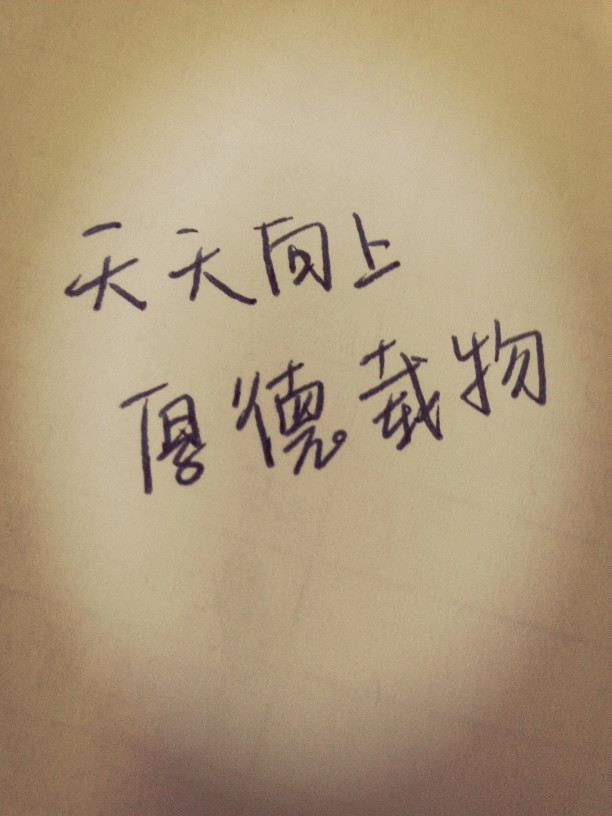 天天向上
厚德载物